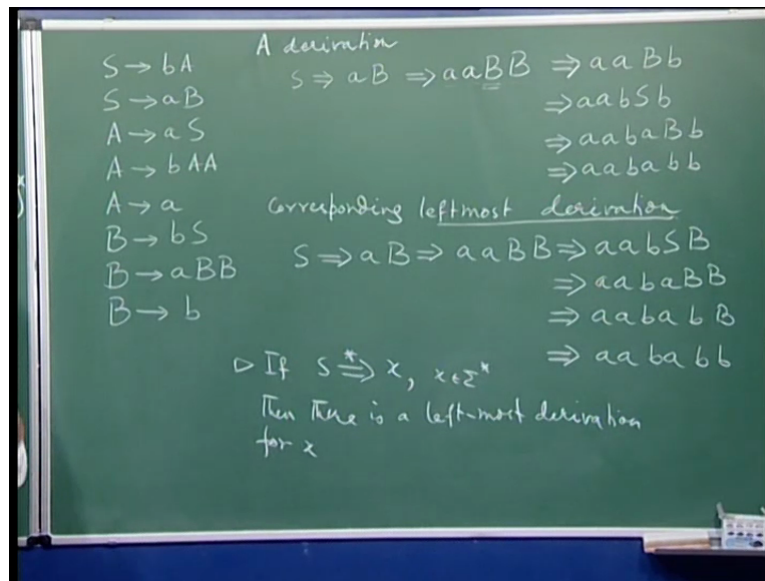 S → bA
S → aB
A → aS
A → bAA
A → a
B → bS
B → aBB
B → b
A derivation
S ⇒ aB ⇒ aaBB ⇒ aaBb
⇒ aabSb
⇒ aabaBb
⇒ aababb
Corresponding leftmost derivation
S ⇒ aB ⇒ aaBB ⇒ aabSB
⇒ aabaBB
⇒ aababB
⇒ aababb
▷ If S ⇒* x, x ∈ Σ*
Then there is a left-most derivation
for x